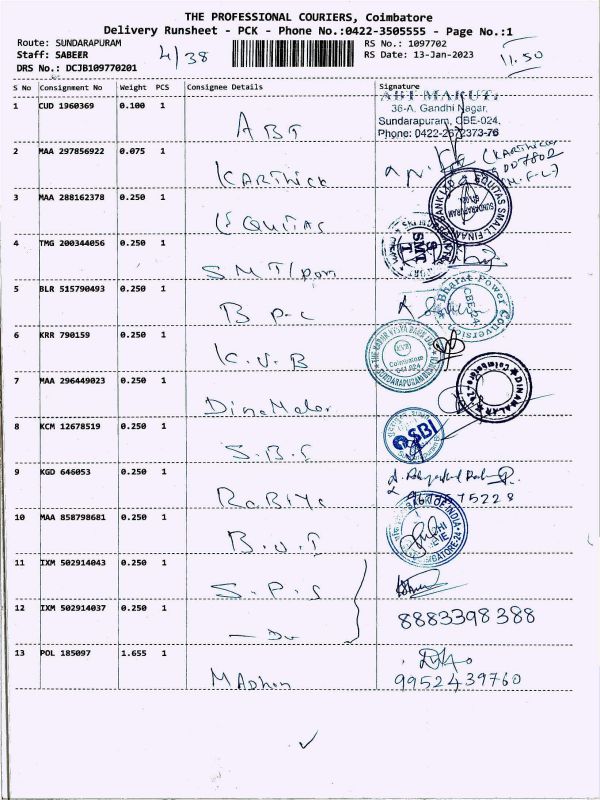 THE PROFESSIONAL COURIERS, Coimbatore
Delivery Runsheet - PCK - Phone No.:0422-3505555 - Page No.:1
Route: SUNDARAPURAM
Staff: SABEER
DRS No.: DCJB109770201
4/38
RS No.: 1097702
RS Date: 13-Jan-2023
11.50
S No Consignment No Weight PCS Consignee Details Signature
1 CUD 1960369 0.100 1 ABT
ABT MARUTI
36-A, Gandhi Nagar,
Sundarapuram, CBE-024.
Phone: 0422-2672373-76
2 MAA 297856922 0.075 1 KARTHICK
(KARTHICK
3 MAA 288162378 0.250 1 EQUITAS
EQUITAS SMALL FINANCE BANK LTD
SUNDARAPURAM
4 TMG 200344056 0.250 1 SMT/Pon
SMT
5 BLR 515790493 0.250 1 B P-C
Bharat Power Conversion
CBE-24
6 KRR 790159 0.250 1 K.V.B
THE KARUR VYSYA BANK LTD.
KVB
Coimbatore
641 024
SUNDARAPURAM
7 MAA 296449023 0.250 1 DinaMalar
DINAMALAR
Coimbatore
8 KCM 12678519 0.250 1 S.B.I
SBI
9 KGD 646053 0.250 1 RaBiya
75228
10 MAA 858798681 0.250 1 B.O.I
BANK OF INDIA
11 IXM 502914043 0.250 1 S.P.S
12 IXM 502914037 0.250 1 — Do
8883398388
13 POL 185097 1.655 1 MADhan
9952439760